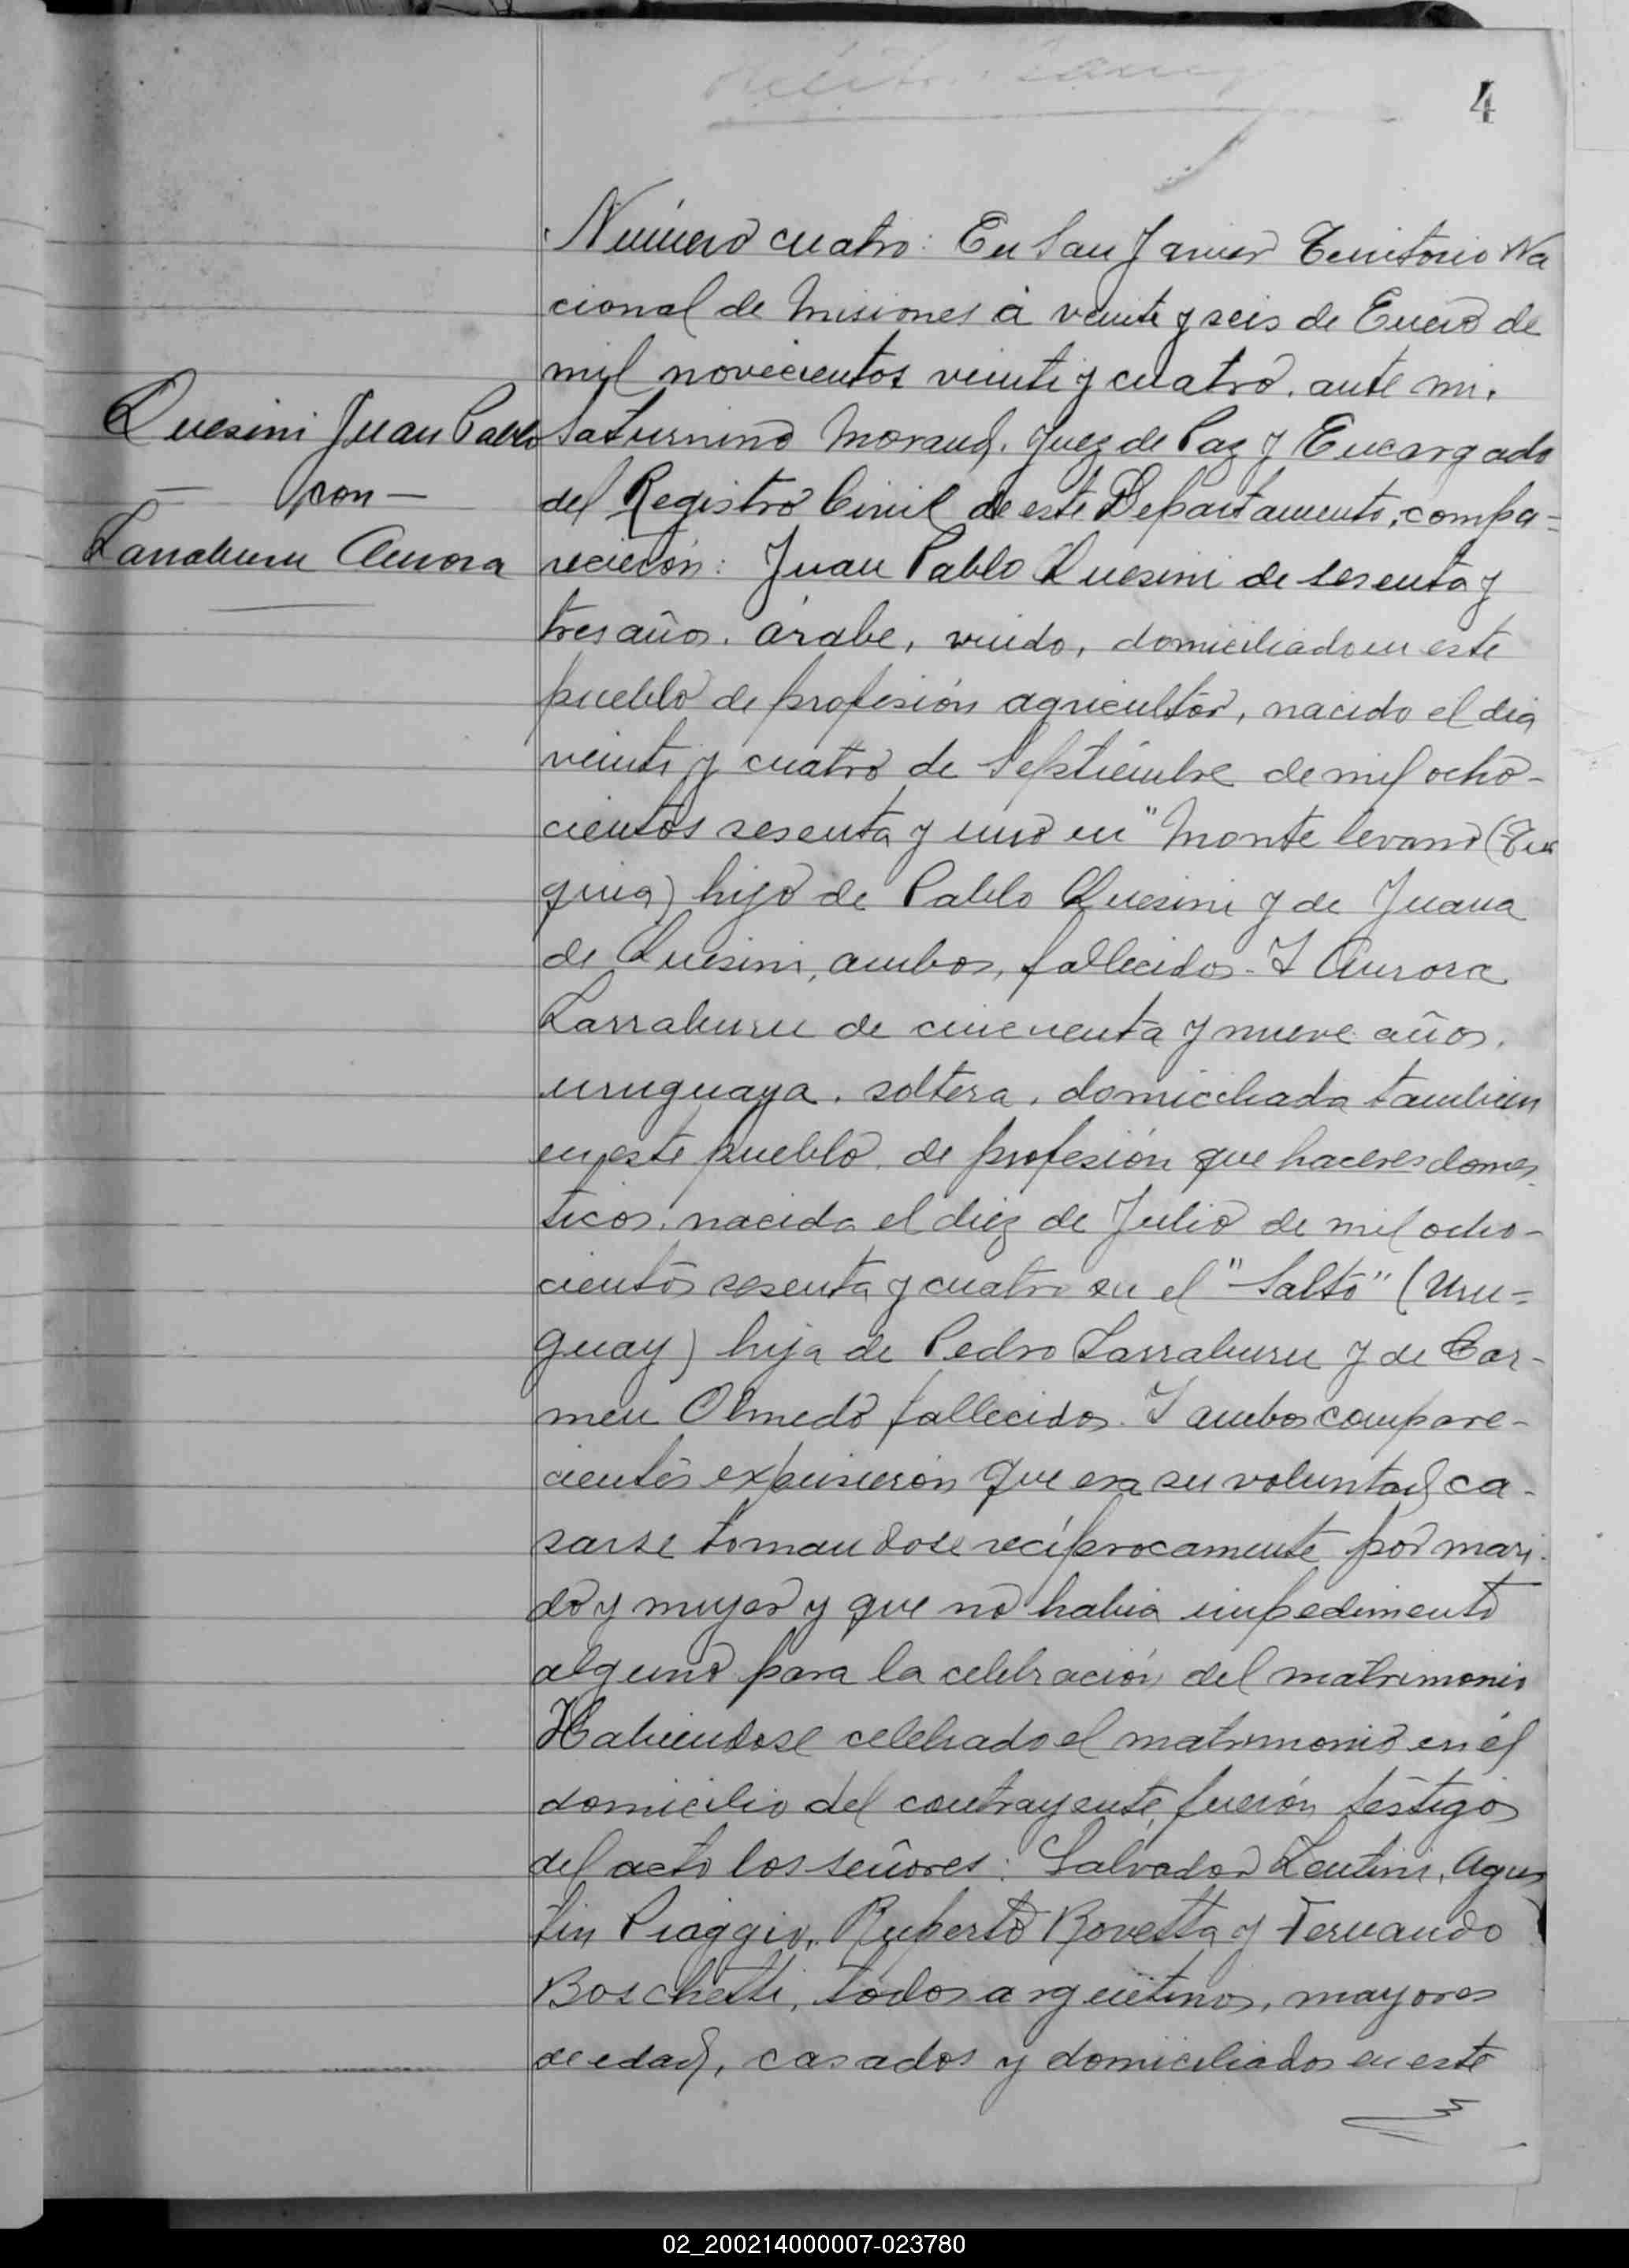 4
Número cuatro: En San Javier Territorio Na
cional de Misiones á veinte y seis de Enero de
mil novecientos veinte y cuatro. ante mi.
Quesini Juan Pablo
— con —
Larraburu Aurora
Saturnino Moraud. Juez de Paz y Encargado
del Registro Civil de este Departamento, compa=
recieron: Juan Pablo Quesini de sesenta y
tres años. árabe, viudo, domiciliado en este
pueblo de profesión agricultor, nacido el dia
veinte y cuatro de Septiembre de mil ocho-
cientos sesenta y uno en "Monte levano (Tur
quia) hijo de Pablo Quesini y de Juana
de Quesini, ambos, fallecidos. Y Aurora
Larraburu de cincuenta y nueve años.
uruguaya. soltera. domiciliada tambien
en este pueblo. de profesión que haceres domes
ticos. nacida el diez de Julio de mil ocho-
cientos sesenta y cuatro en el "Salto" (Uru=
guay) hija de Pedro Larraburu y de Car-
men Olmedo fallecidos. Y ambos compare-
cientes expusieron que era su voluntad ca-
sarse tomandose recíprocamente por mari-
do y mujer y que no habia impedimento
alguno para la celebración del matrimonio
Habiendose celebrado el matrimonio en el
domicilio del contrayente, fueron testigos
del acto los señores: Salvador Lentini, Agus
tin Piaggio, Ruperto Rovetta y Fernando
Boschetti, todos argentinos, mayores
de edad, casados y domiciliados en este
02_200214000007-023780